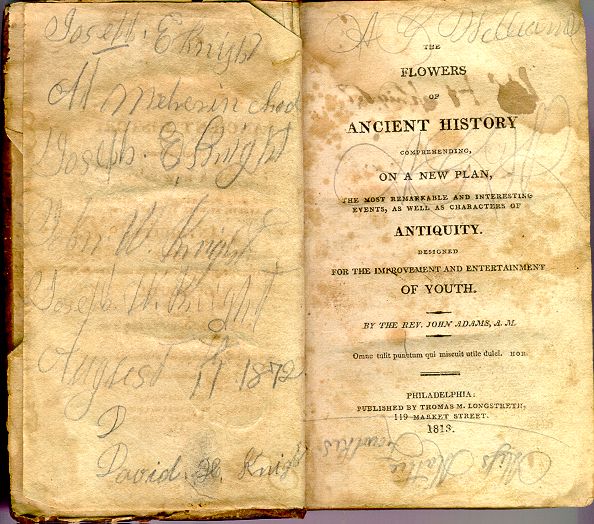 Joseph. E Knight
Joseph. E Knight
W. Knight
Joseph. W. Knight
August 11 1872
D
David. H. Knight
THE
FLOWERS
OF
ANCIENT HISTORY
COMPREHENDING,
ON A NEW PLAN,
THE MOST REMARKABLE AND INTERESTING
EVENTS, AS WELL AS CHARACTERS OF
ANTIQUITY.
DESIGNED
FOR THE IMPROVEMENT AND ENTERTAINMENT
OF YOUTH.
BY THE REV. JOHN ADAMS, A. M.
Omne tulit punctum qui miscuit utile dulci. HOR.
PHILADELPHIA:
PUBLISHED BY THOMAS M. LONGSTRETH,
119 MARKET STREET.
1813.
Miss Mattie